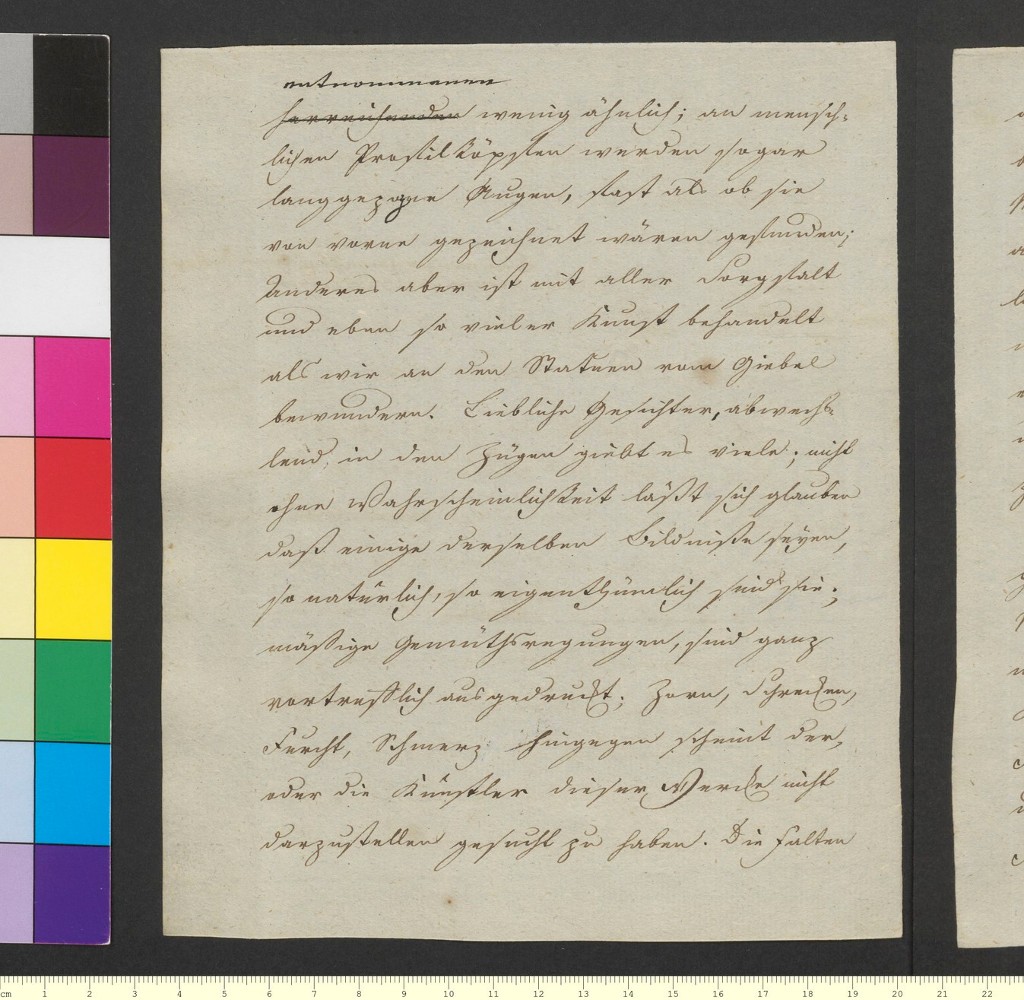 entnommenen
herreichenden wenig ähnlich; an mensch-
lichen Profilköpffen werden sogar
langgezogne Augen, fast als ob sie
von vorne gezeichnet wären gefunden;
Anderes aber ist mit aller Sorgfalt
und eben so vieler Kunst behandelt
als wir an den Statuen vom Giebel
bewundern. Liebliche Gesichter, abwechs-
lend, in den Zügen giebt es viele; nicht
ohne Wahrscheinlichkeit läßt sich glauben
daß einige derselben Bildniße seyen,
so natürlich, so eigenthümlich sind sie;
mäßige Gemüthsregungen, sind ganz
vortrefflich ausgedruckt; Zorn, Schrecken,
Furcht, Schmerz hingegen scheint der,
oder die Künstler dieser Wercke nicht
darzustellen gesucht zu haben. Die Falten